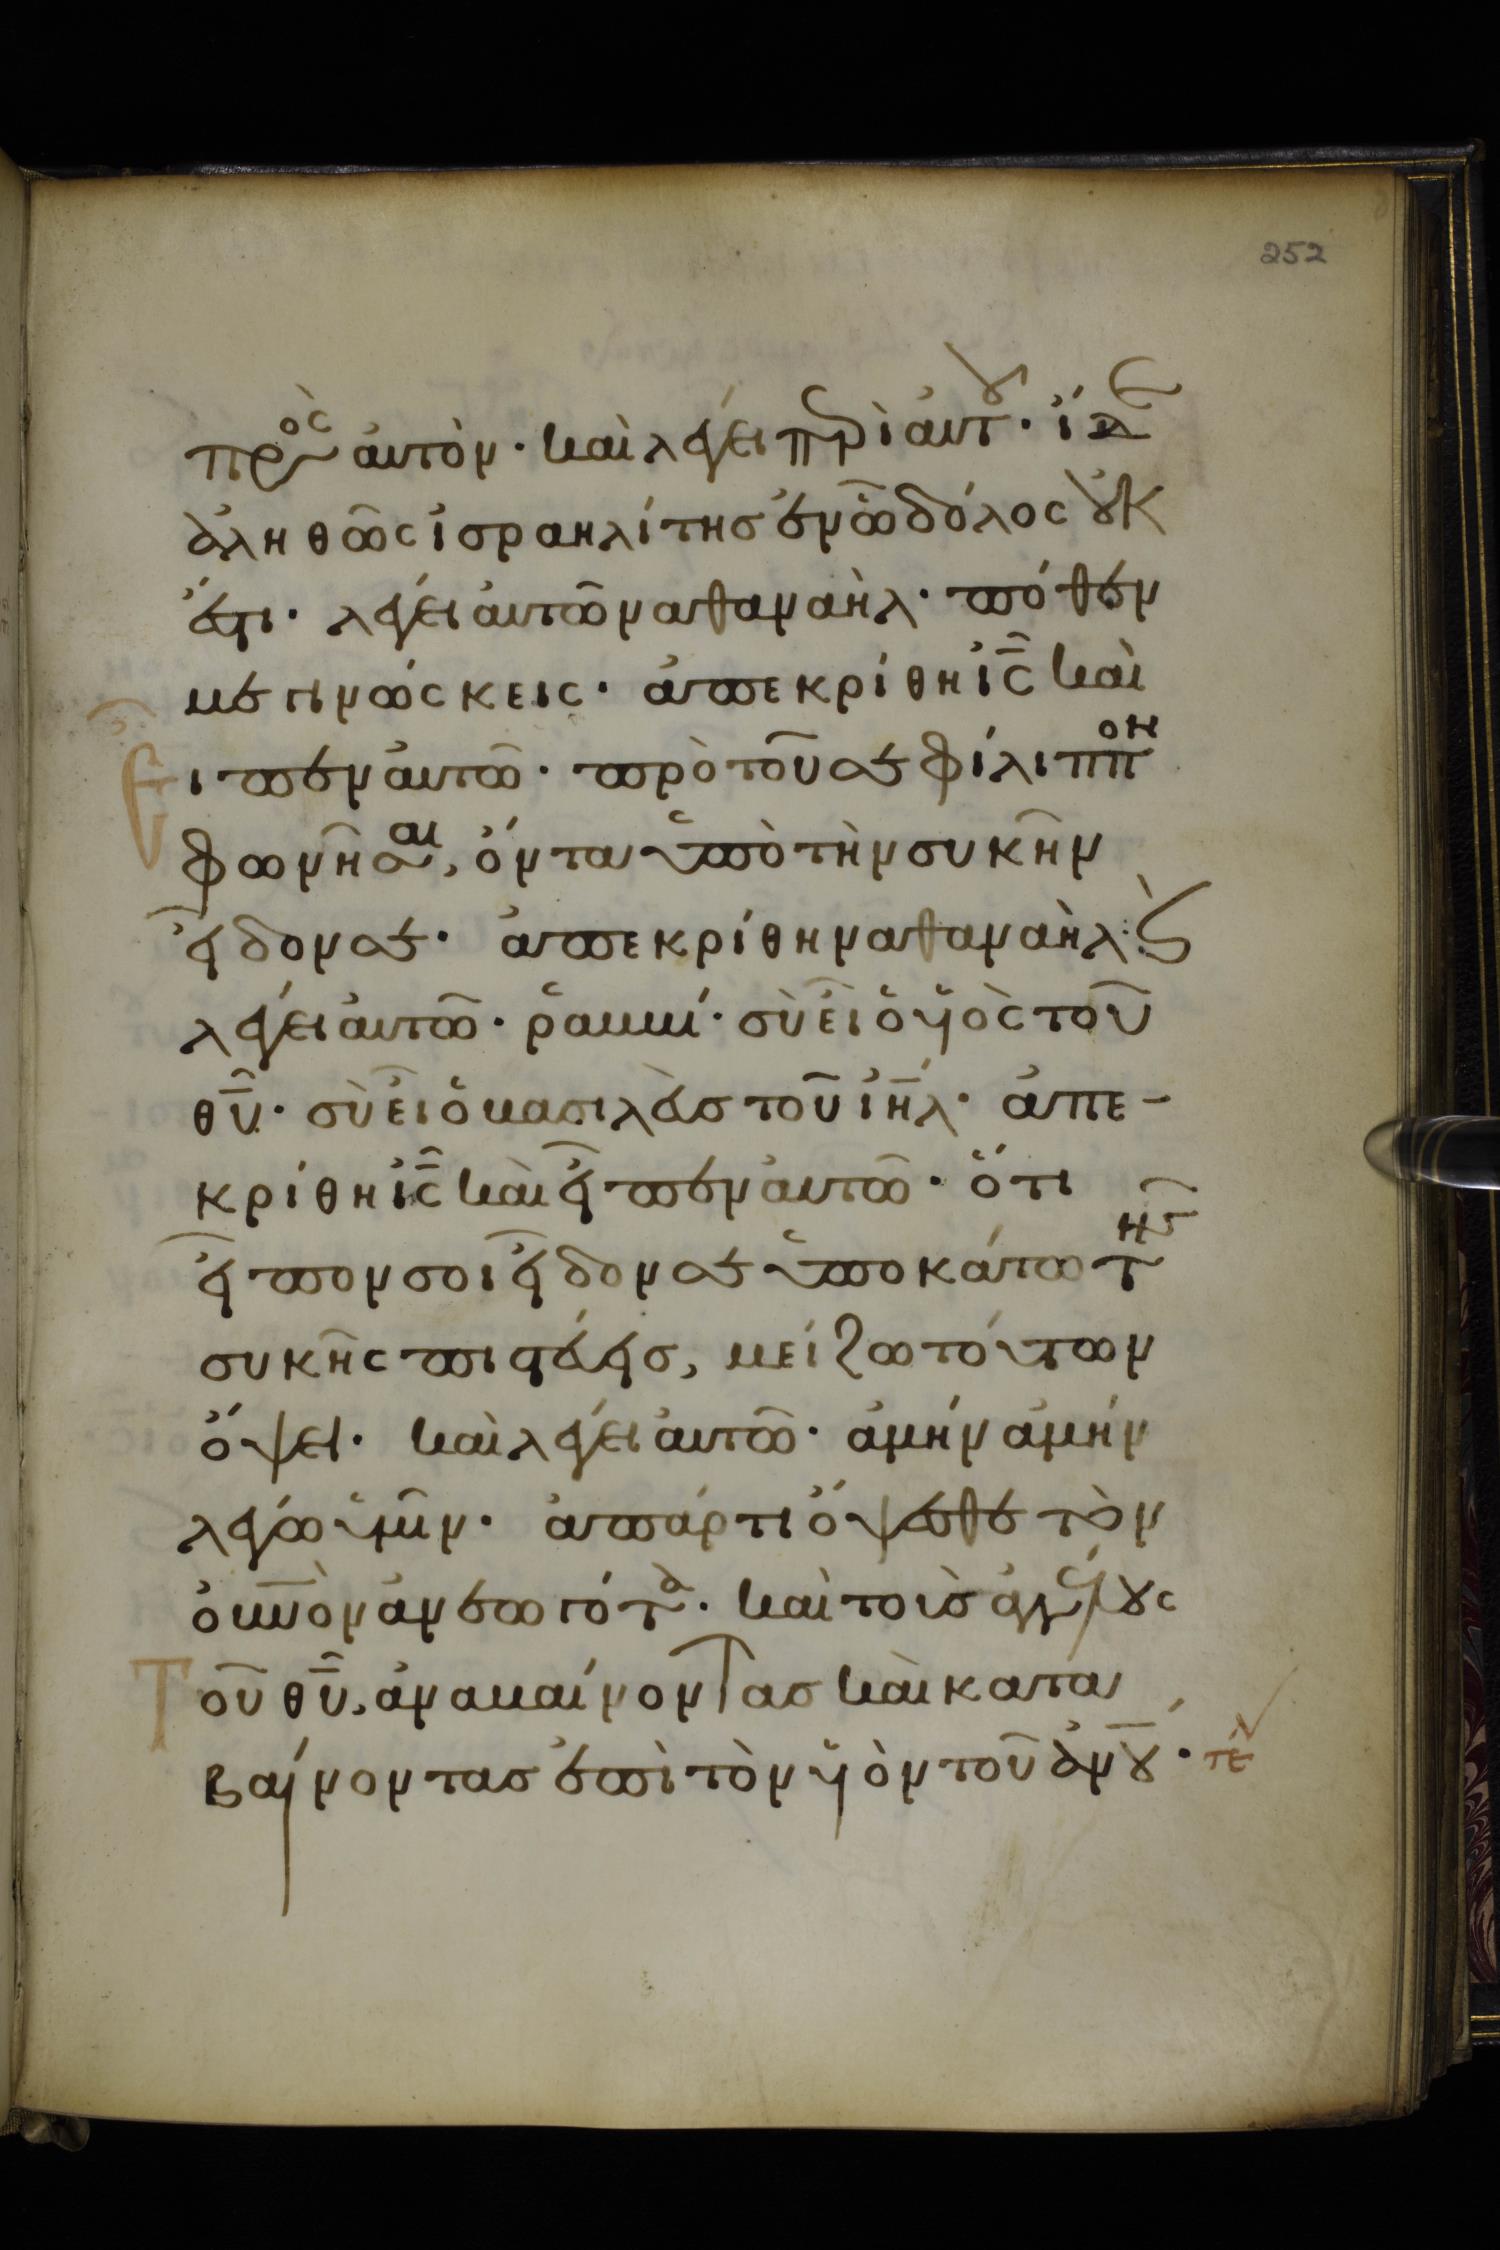 252
πρὸς ἀυτὸν· καὶ λέγει περὶ ἀυτοῦ· ἴδε
ἀληθῶς ἰσραηλίτης ἐν ὧ δόλος οὐκ
ἔστι· λέγει ἀυτῶ ναθαναὴλ· πόθεν
με γινώσκεις· ἀπεκρίθη ἰ̅ς̅ καὶ
ειπεν ἀυτῶ· πρὸ τοῦ σε φίλιππον
φωνῆσαι, ὄντα ὑπὸ τὴν συκῆν
εἶδον σε· ἀπεκρίθη ναθαναὴλ· καὶ
λέγει ἀυτῶ· ῥαββί· σὺ εἶ ὁ υἱὸς τοῦ
θ̅υ̅· σὺ εἶ ὁ βασιλεὺς τοῦ ἰ̅η̅λ̅· ἀπε-
κρίθη ἰ̅ς̅ καὶ εἶπεν ἀυτῶ· ὅτι
εἶπον σοι εἶδον σε ὑποκάτω τῆς
συκῆς πιστεύεις, μείζω τούτων
ὄψει· καὶ λέγει ἀυτῶ· ἀμὴν ἀμὴν
λέγω ὑμῖν· ἀπάρτι ὄψεσθε τὸν
ο̅υ̅ν̅ὸν ἀνεωγότα· καὶ τοὺς ἀγγέλους
Τοῦ θ̅υ̅, ἀναβαίνοντας καὶ κατα
βαίνοντας ἐπὶ τὸν υἱὸν τοῦ ἀ̅ν̅ο̅υ̅· τέλ